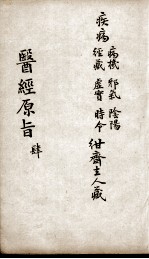 疾病 病機 邪氣 陰陽
經藏 虛實 時令 紺齋主人藏
醫經原旨 肆